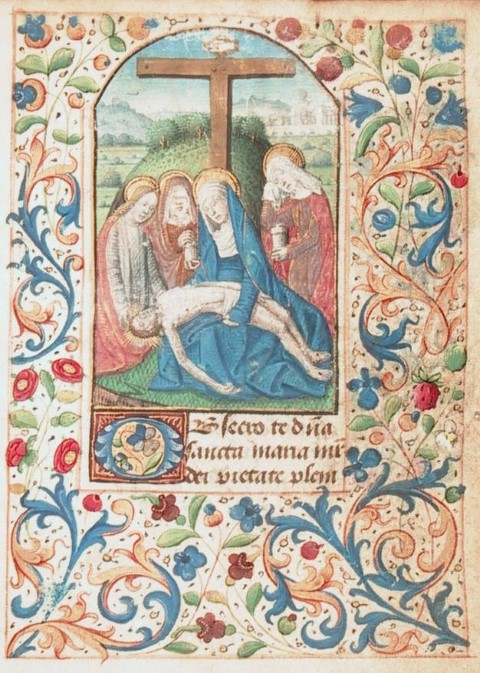 Obsecro te dña
sancta maria mr̃
dei pietate plem